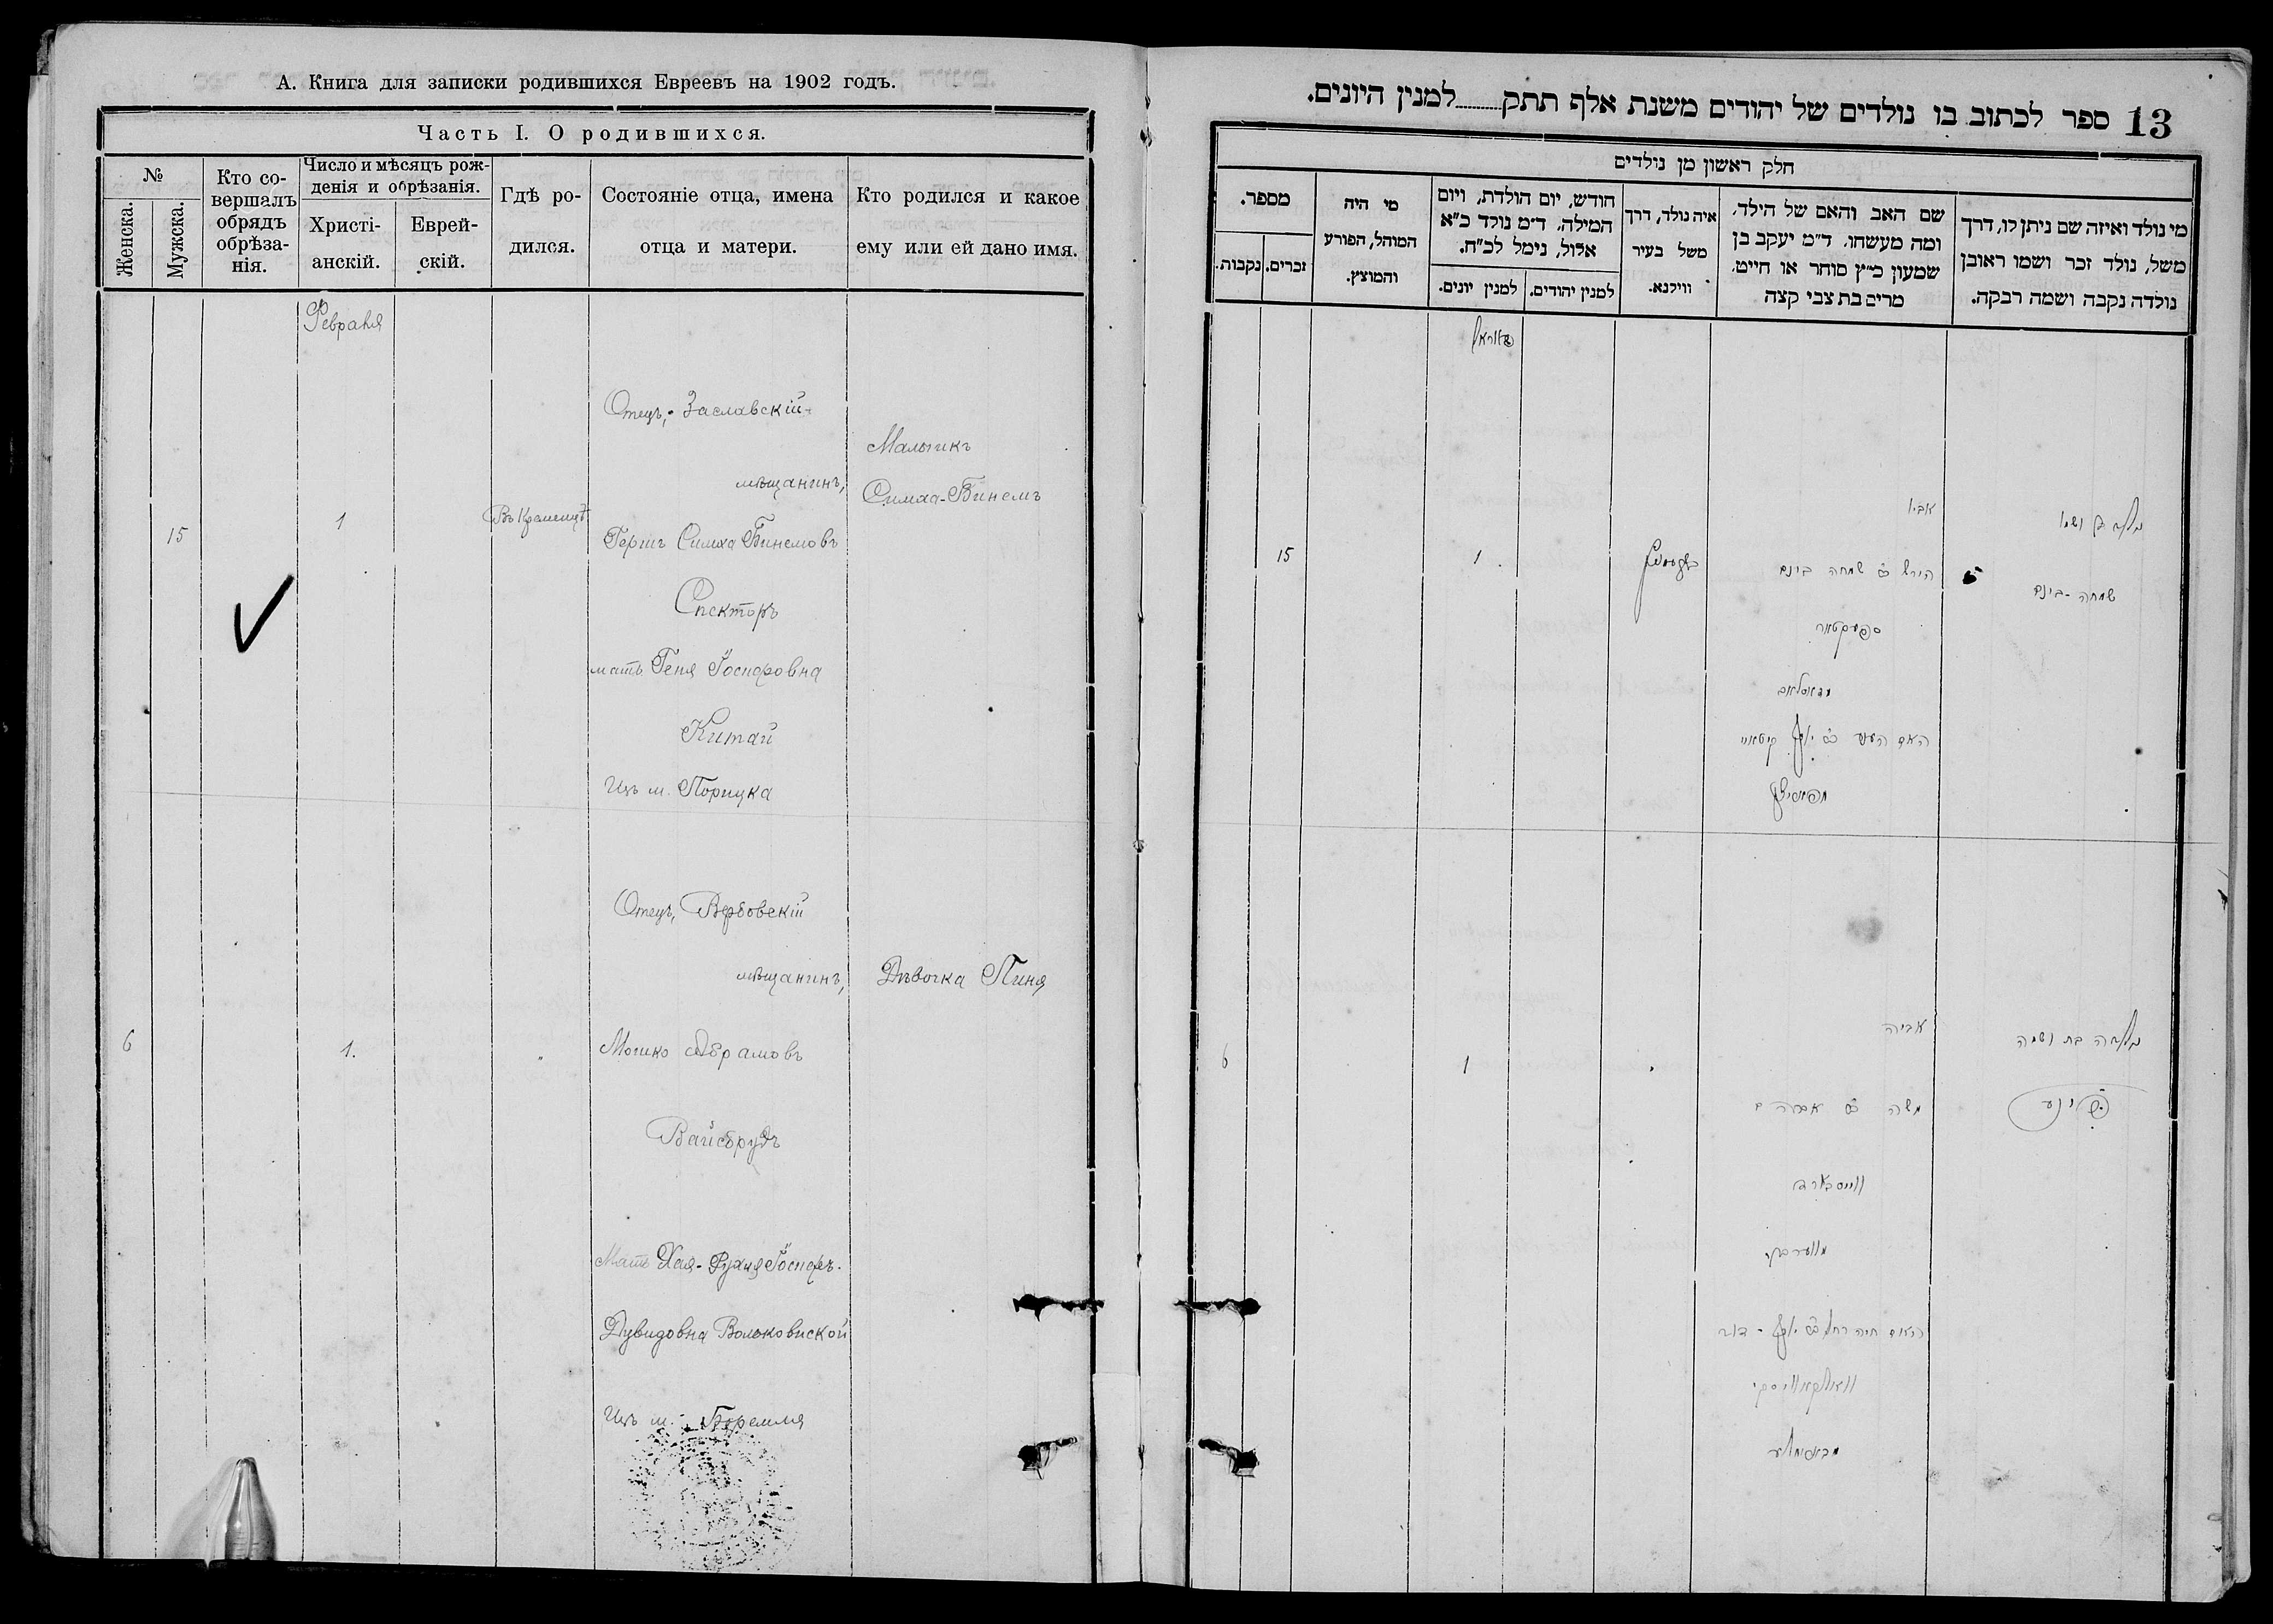 А. Книга для записки родившихся Евреевъ на 1902 годъ.
Часть I. О родившихся.
№
Женска.
Мужска.
Кто со-
вершалъ
обрядъ
обрѣза-
нія.
Число и мѣсяцъ рож-
денія и обрѣзанія.
Христі-
анскій.
Еврей-
скій.
Гдѣ ро-
дился.
Состояніе отца, имена
отца и матери.
Кто родился и какое
ему или ей дано имя.
Февраля
15
1
Въ Кременцѣ
Отецъ, Заславскій
мѣщанинъ,
Герш Симха Бинемовъ
Спекторъ
мать Геня Іосифовна
Китай
Изъ м. Порицка
Мальчикъ
Симха-Бинемъ
6
1.
Отецъ, Вербовскій
мѣщанинъ,
Мошко Абрамовъ
Вайсбрудъ
Мать Хая- Рухля Іосифъ-
Дувидовна
Изъ м.
Дѣвочка Пиня
13 ספר לכתוב בו נולדים של יהודים משנת אלף תתק למנין היונים.
חלק ראשון מן נולדים
מי נולד ואיזה שם ניתן לו, דרך
משל, נולד זכר ושמו ראובן
נולדה נקבה ושמה רבקה.
שם האב והאם של הילד,
ומה מעשהו, ד"מ יעקב בן
שמעון כ"ץ סוחר או חייט,
מרים בת צבי קצה
איה נולד, דרך
משל בעיר
ווילנא.
חודש, יום הולדת, ויום
המילה, ד"מ נולד כ"א
אלול, נימל לכ"ח.
למנין יהודים.
למנין יונים.
מי היה
המוהל, הפורע
והמוצץ.
מספר.
זכרים.
נקבות.
15
1
אביו
הירש ב"ר שמחה בינם
ספעקטאר
שמחה-בינם
6
1
אביה
משה ב"ר אברהם
נולדה בת ושמה
פינע